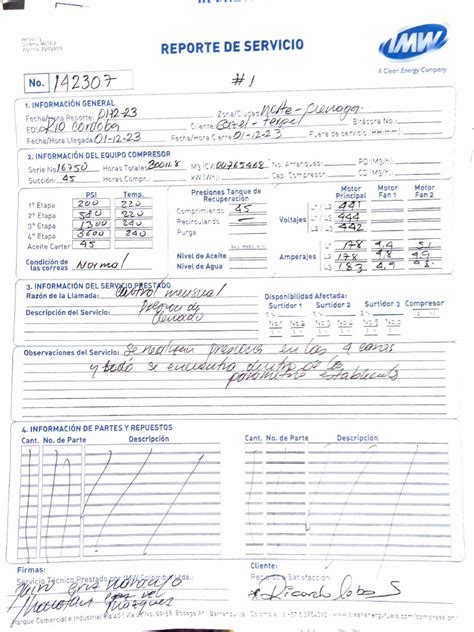 REPORTE DE SERVICIO
IMW
A Clean Energy Company
No. 142307 #1
1. INFORMACIÓN GENERAL
Fecha/Hora Reporte: 01-12-23 Zona/Ciudad: Norte - Cienaga
EDS: Rio Cordoba Cliente: Bitácora No.:
Fecha/Hora Llegada: 01-12-23 Fecha/Hora Cierre: 01-12-23 Fuera de servicio (HH:mm):
2. INFORMACIÓN DEL EQUIPO COMPRESOR
Serie No: 16750 Horas Totales: 30011.8 Mg (CV: 00765468 No. Arranques: PD (M3/h):
Succión: 45 Horas Compr.: KW (W/h): Cap. Compressor: CD (M3/h):
PSI Temp. Presiones Tanque de Recuperación Motor Principal Motor Fan 1 Motor Fan 2
1ª Etapa 200 220
2ª Etapa 580 220
3ª Etapa 1300 240
4ª Etapa 3600 240
Aceite Carter 45
Comprimiendo 45
Recirculando
Voltajes L1 441
L2 444
L3 442
Nivel de Aceite
Nivel de Agua
Amperajes L1 178 4,4 5,1
L2 178 4,8
L3 183 4,9
Condición de las correas Normal
3. INFORMACIÓN DEL SERVICIO PRESTADO
Razón de la Llamada: Control mensual
Descripción del Servicio: Presion de llenado
Disponibilidad Afectada:
Surtidor 1 Surtidor 2 Surtidor 3 Compresor
Observaciones del Servicio: Se realizan presiones en las 4 caras
y todo se encuentra dentro de los
parametros establecidos
4. INFORMACIÓN DE PARTES Y REPUESTOS
Cant. No. de Parte Descripción Cant. No. de Parte Descripción
Firmas:
Servicio Técnico Prestado por IMW Colombia Ltda.:
Cliente:
Recibido a Satisfacción:
Ricardo Lobo S
Parque Comercial e Industrial Vía 40 Barranquilla - Colombia